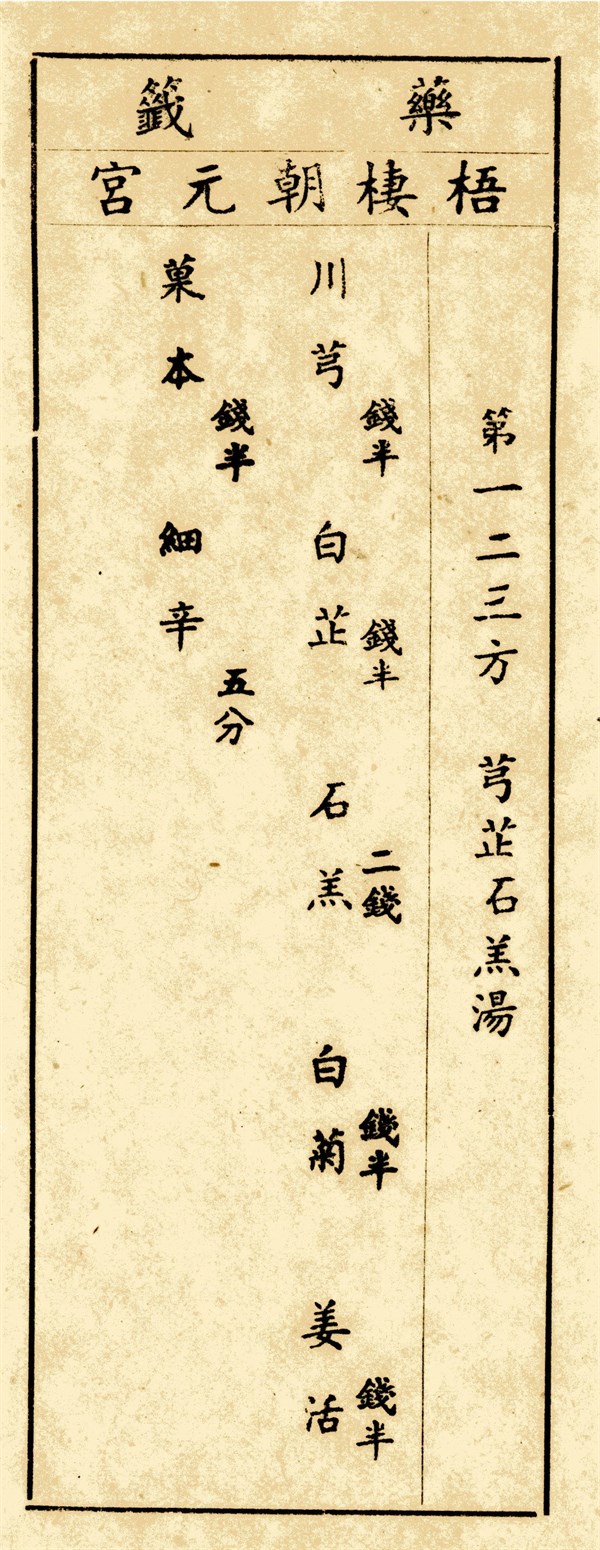 藥籤
梧棲朝元宮
第一二三方　芎芷石羔湯
川芎 錢半 白芷 錢半 石羔 二錢 白菊 錢半 姜活 錢半
菓本 錢半 細辛 五分